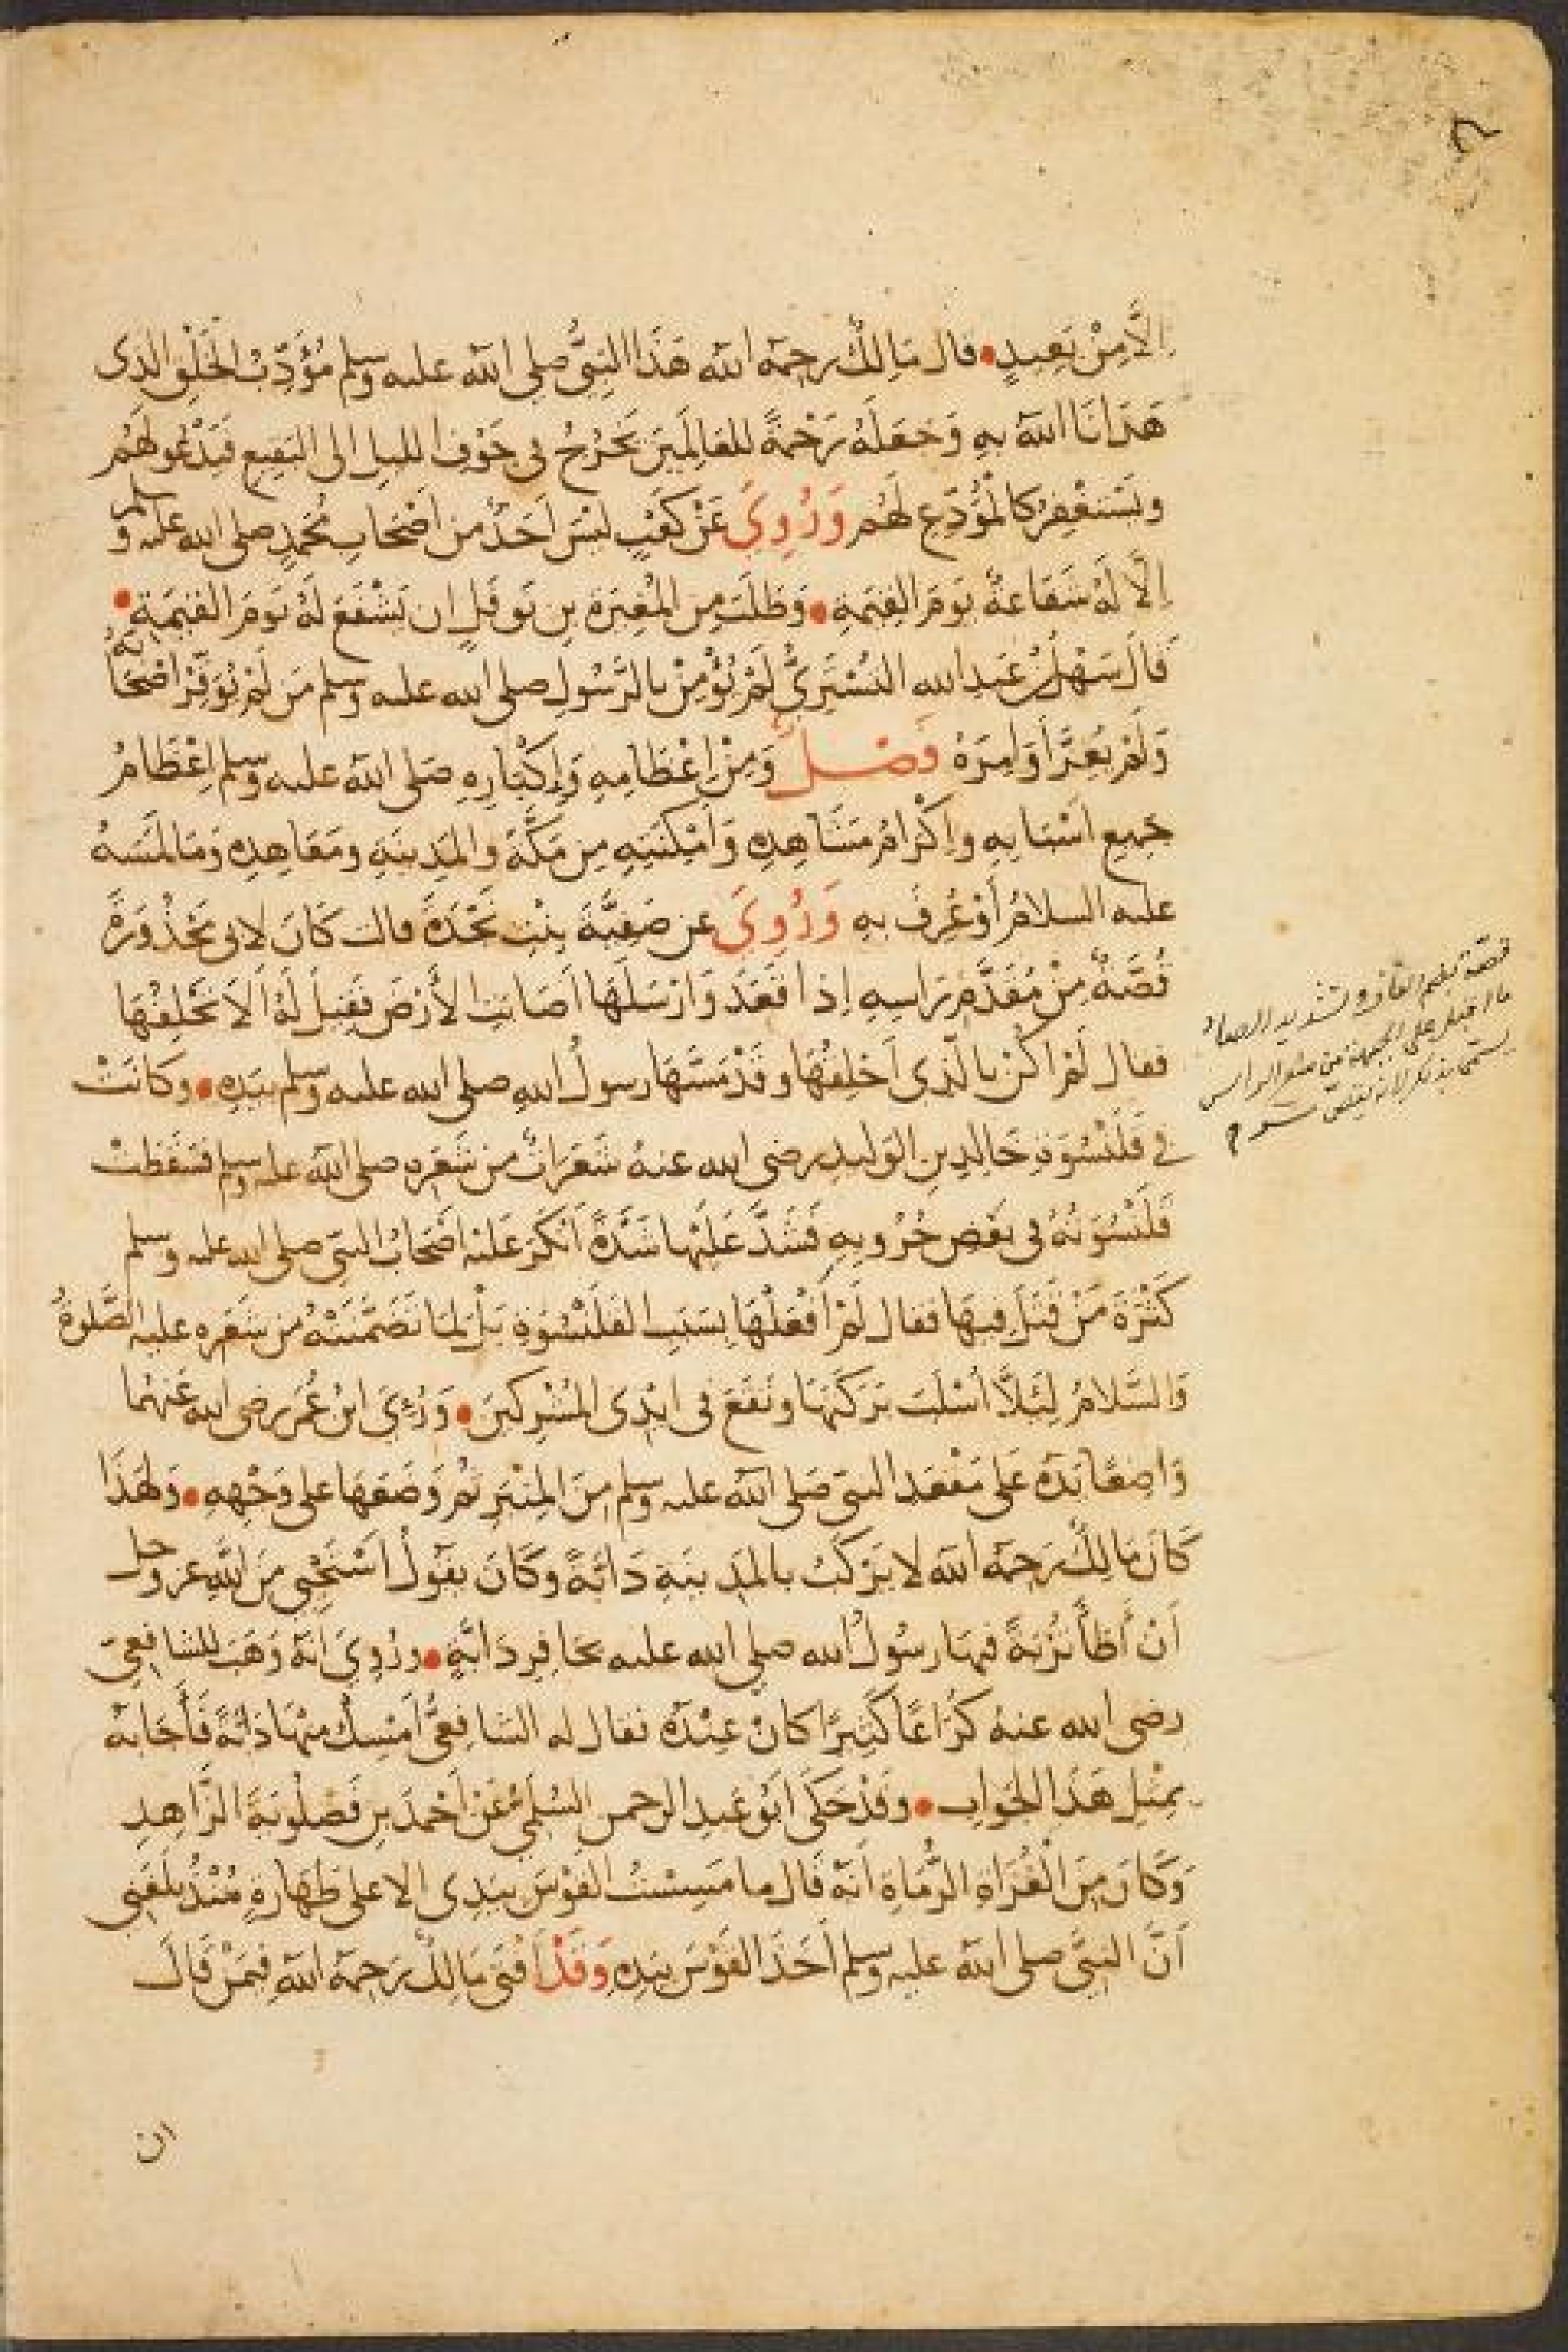 إلا من بعيد • قال مالك رحمه الله هذا النبي صلى الله عليه وسلم مؤدب الخلق الذى
هدانا الله به وجعله رحمة للعالمين يخرج فى جوف الليل الى البقيع فيدعو لهم
ويستغفر كالمودع لهم وروي عن كعب ليس احد من اصحاب محمد صلى الله عليه وسلم
إلا له شفاعة يوم القيمة • وطلب من المغيرة بن نوفل ان يشفع له يوم القيمة •
قال سهل بن عبد الله التستري لم يؤمن بالرسول صلى الله عليه وسلم من لم يوقر اصحابه
ولم يعز أوامره فصل ومن إعظامه وإكباره صلى الله عليه وسلم إعظام
جميع اسبابه وإكرام مشاهده وأمكنته من مكة والمدينة ومعاهده وما لمسه
عليه السلام أو عرف به وروي عن صفية بنت نجدة قالت كان لابى محذورة
قصة من مقدم راسه إذا قعد وارسلها اصابت الأرض فقيل له ألا تحلقها
فقال لم اكن بالذي احلقها وقد مسها رسول الله صلى الله عليه وسلم بيده • وكانت
في قلنسوة خالد بن الوليد رضى الله عنه شعرات من شعره صلى الله عليه وسلم فسقطت
قلنسوته فى بعض حروبه فشد عليها شدة أنكر عليه اصحاب النبى صلى الله عليه وسلم
كثرة من قتل فيها فقال لم أفعلها بسبب القلنسوة بل لما تضمنته من شعره عليه الصلوة
والسلام لئلا أسلب بركتها وتقع فى ايدى المشركين • ورئي ابن عمر رضى الله عنهما
واضعا يده على مقعد النبى صلى الله عليه وسلم من المنبر ثم وضعها على وجهه • ولهذا
كان مالك رحمه الله لا يركب بالمدينة دابة وكان يقول استحيي من الله عز وجل
أن أطأ تربة فيها رسول الله صلى الله عليه بحافر دابة • وروي انه وهب للشافعي
رضى الله عنه كراعا كثيرا كان عنده فقال له الشافعي أمسك منها دابة فأجابه
بمثل هذا الجواب • وقد حكى ابو عبد الرحمن السلمي عن أحمد بن فضلوية الزاهد
وكان من الغزاة الرماة أنه قال ما مسست القوس بيدى الا على طهارة منذ بلغني
أن النبى صلى الله عليه وسلم أخذ القوس بيده وقد افتى مالك رحمه الله فيمن قال
ان
قصة بضم القاف وتشديد الصاد
ما اقبل على الجبهة من شعر الراس